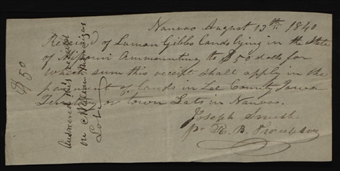 Nauvoo August 13th 1840
Received of Laman Gibbs lands lying in the State
of Missouri Ammounting to $50 doll for
Which sum this receipt shall apply in the
payment of lands in Lee County Iowa
Territory or Town Lots in Nauvoo.
Joseph Smith
pr R. B. Thompson
$50